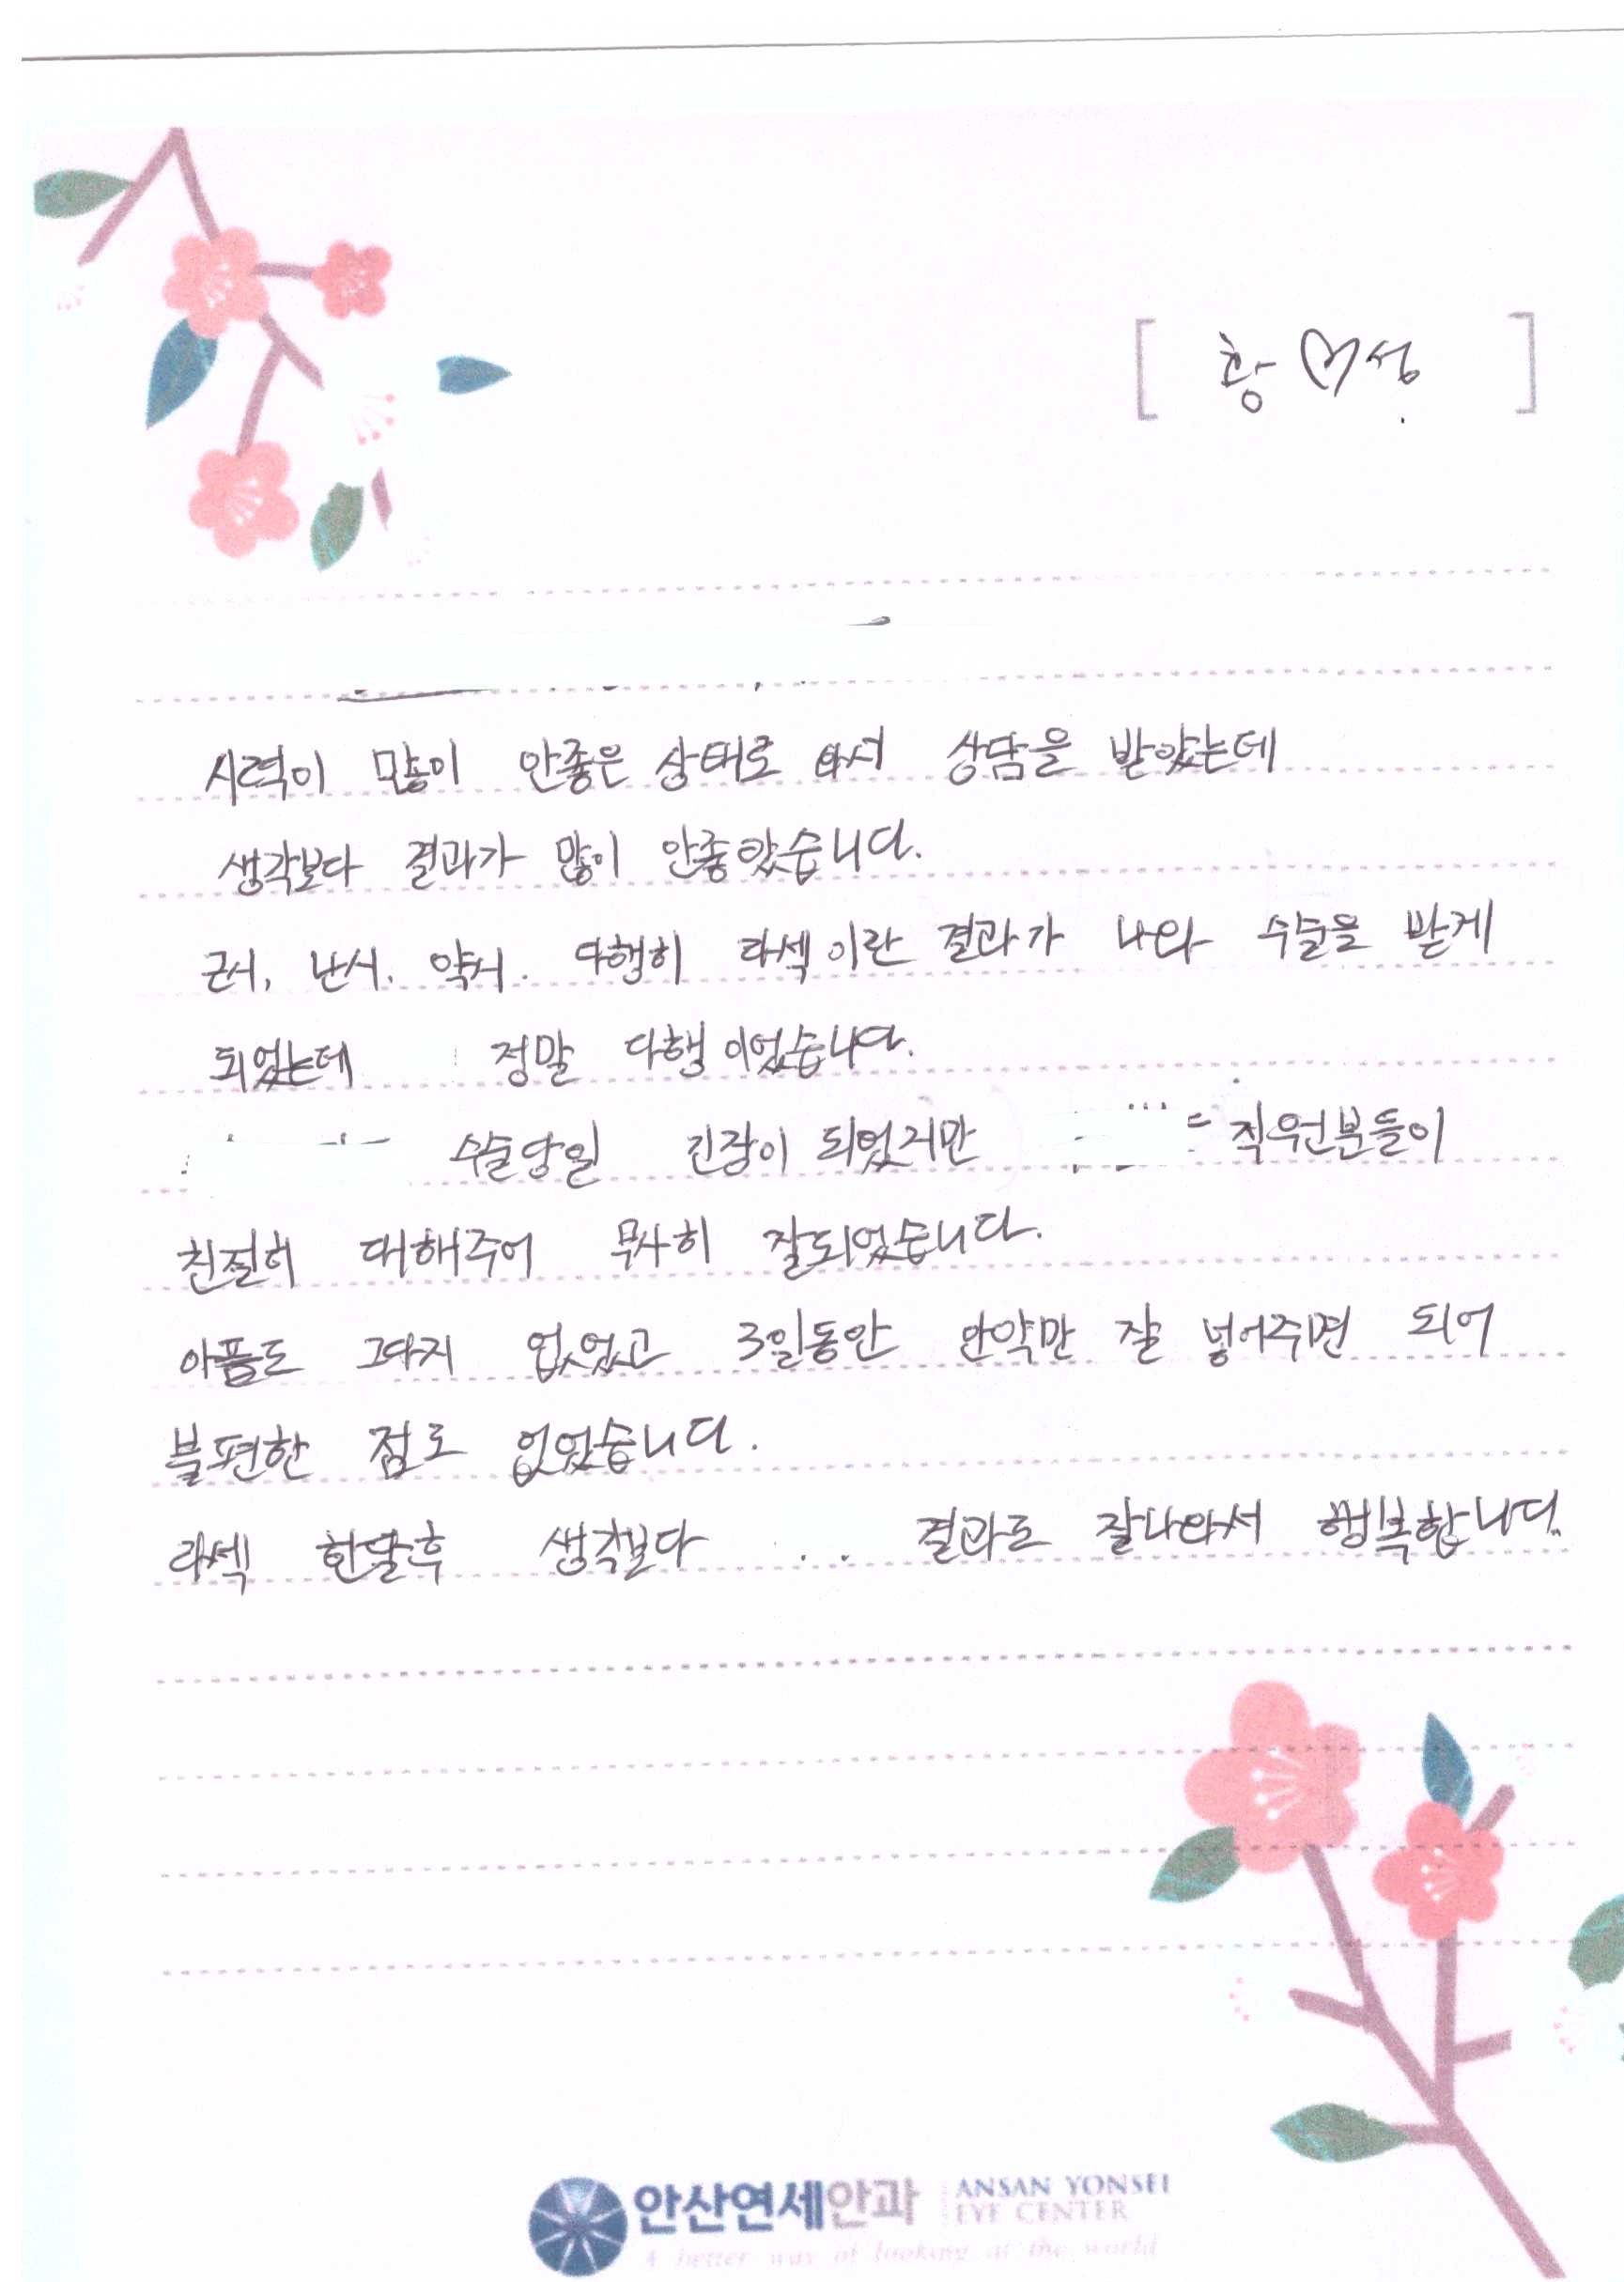 [ 황♡성 ]
시력이 많이 안좋은 상태로 와서 상담을 받았는데
생각보다 결과가 많이 안좋았습니다.
근시, 난시, 약시. 다행히 라섹이란 결과가 나와 수술을 받게
되었는데 정말 다행이었습니다.
수술당일 긴장이 되었지만 직원분들이
친절히 대해주어 무사히 잘되었습니다.
아픔도 그다지 없었고 3일동안 안약만 잘 넣어주면 되어
불편한 점도 없었습니다.
라섹 한달후 생각보다 결과도 잘나와서 행복합니다.
안산연세안과 ANSAN YONSEI
EYE CENTER
A better way of looking at the world